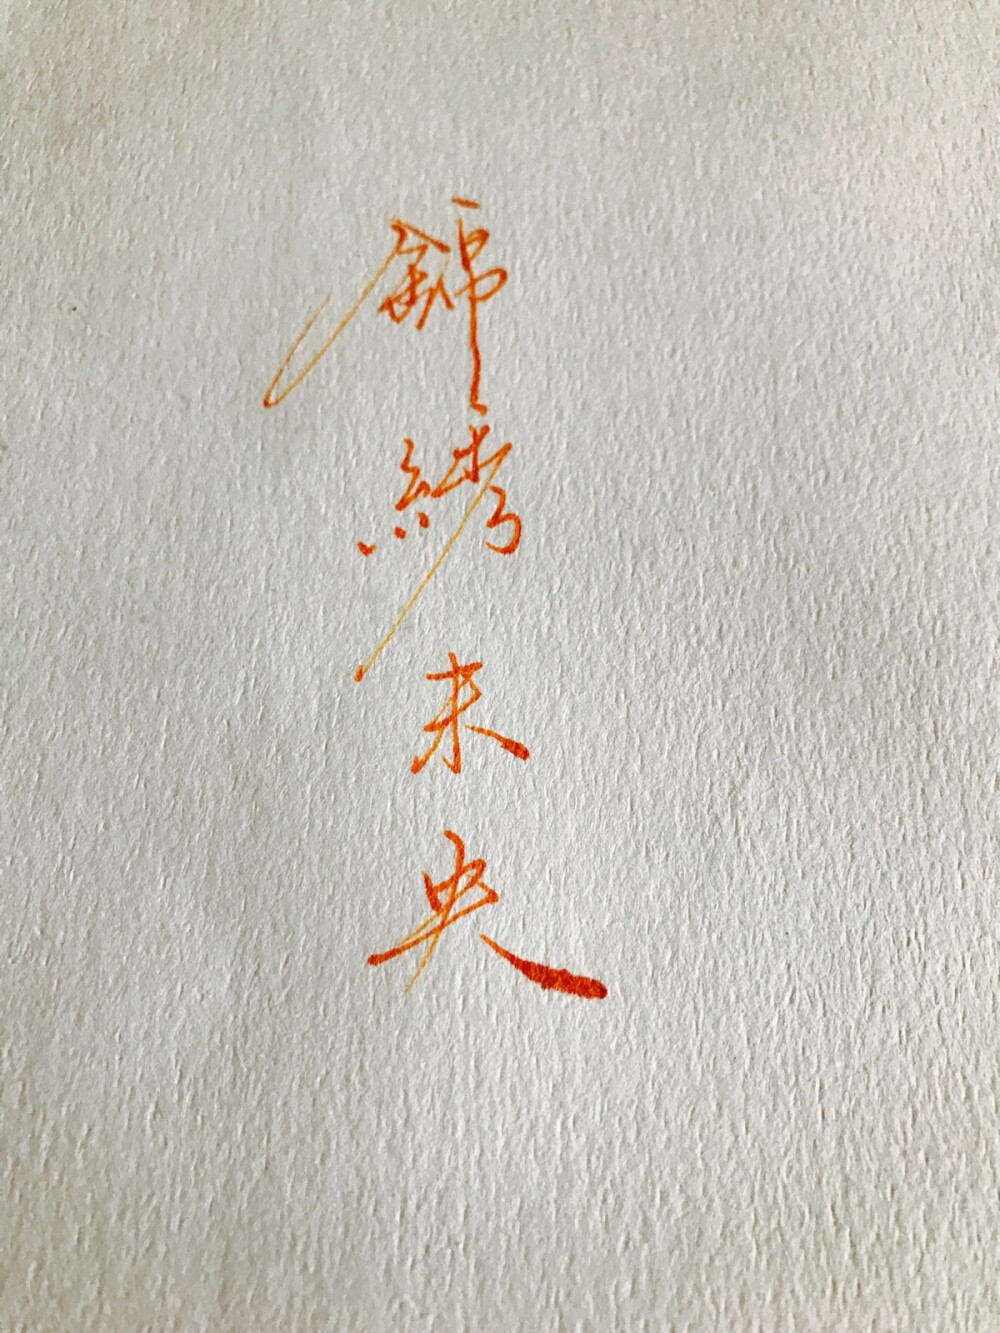 錦綉未央